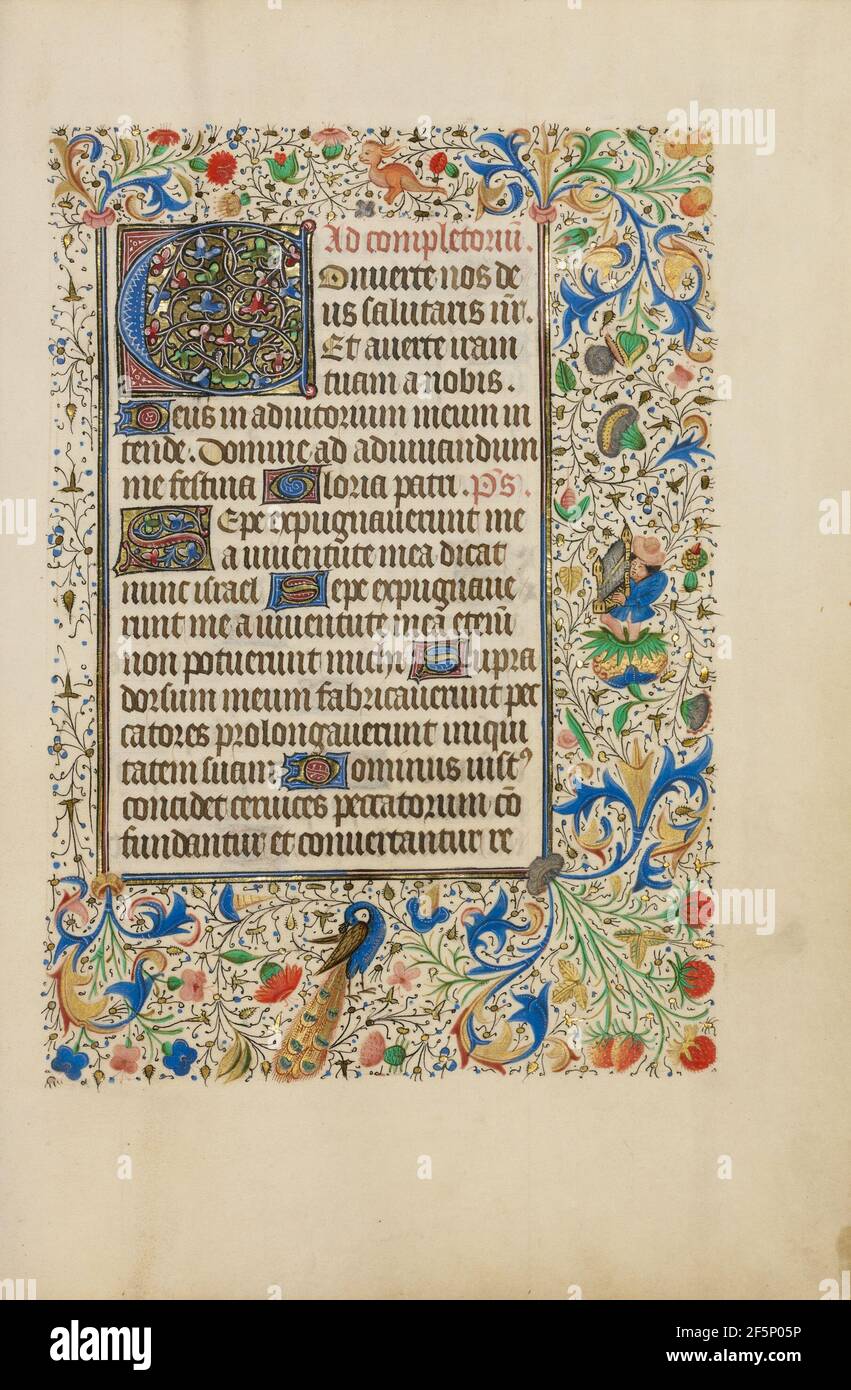 Ad completoriū.
Conuerte nos de
us salutaris nr̄.
Et auerte iram
tuam a nobis.
Deus in adiutorium meum in
tende. Domine ad adiuuandum
me festina Gloria patri. Ps̄.
Sepe expugnauerunt me
a iuuentute mea dicat
nunc israel Sepe expugnaue
runt me a iuuentute mea eteni̅
non potuerunt michi Supra
dorsum meum fabricauerunt pec
catores prolongauerunt iniqui
tatem suam Dominus iustꝰ
concidet ceruices peccatorum cō
fundantur et conuertantur re
alamy
Image ID: 2F5P05P
www.alamy.com